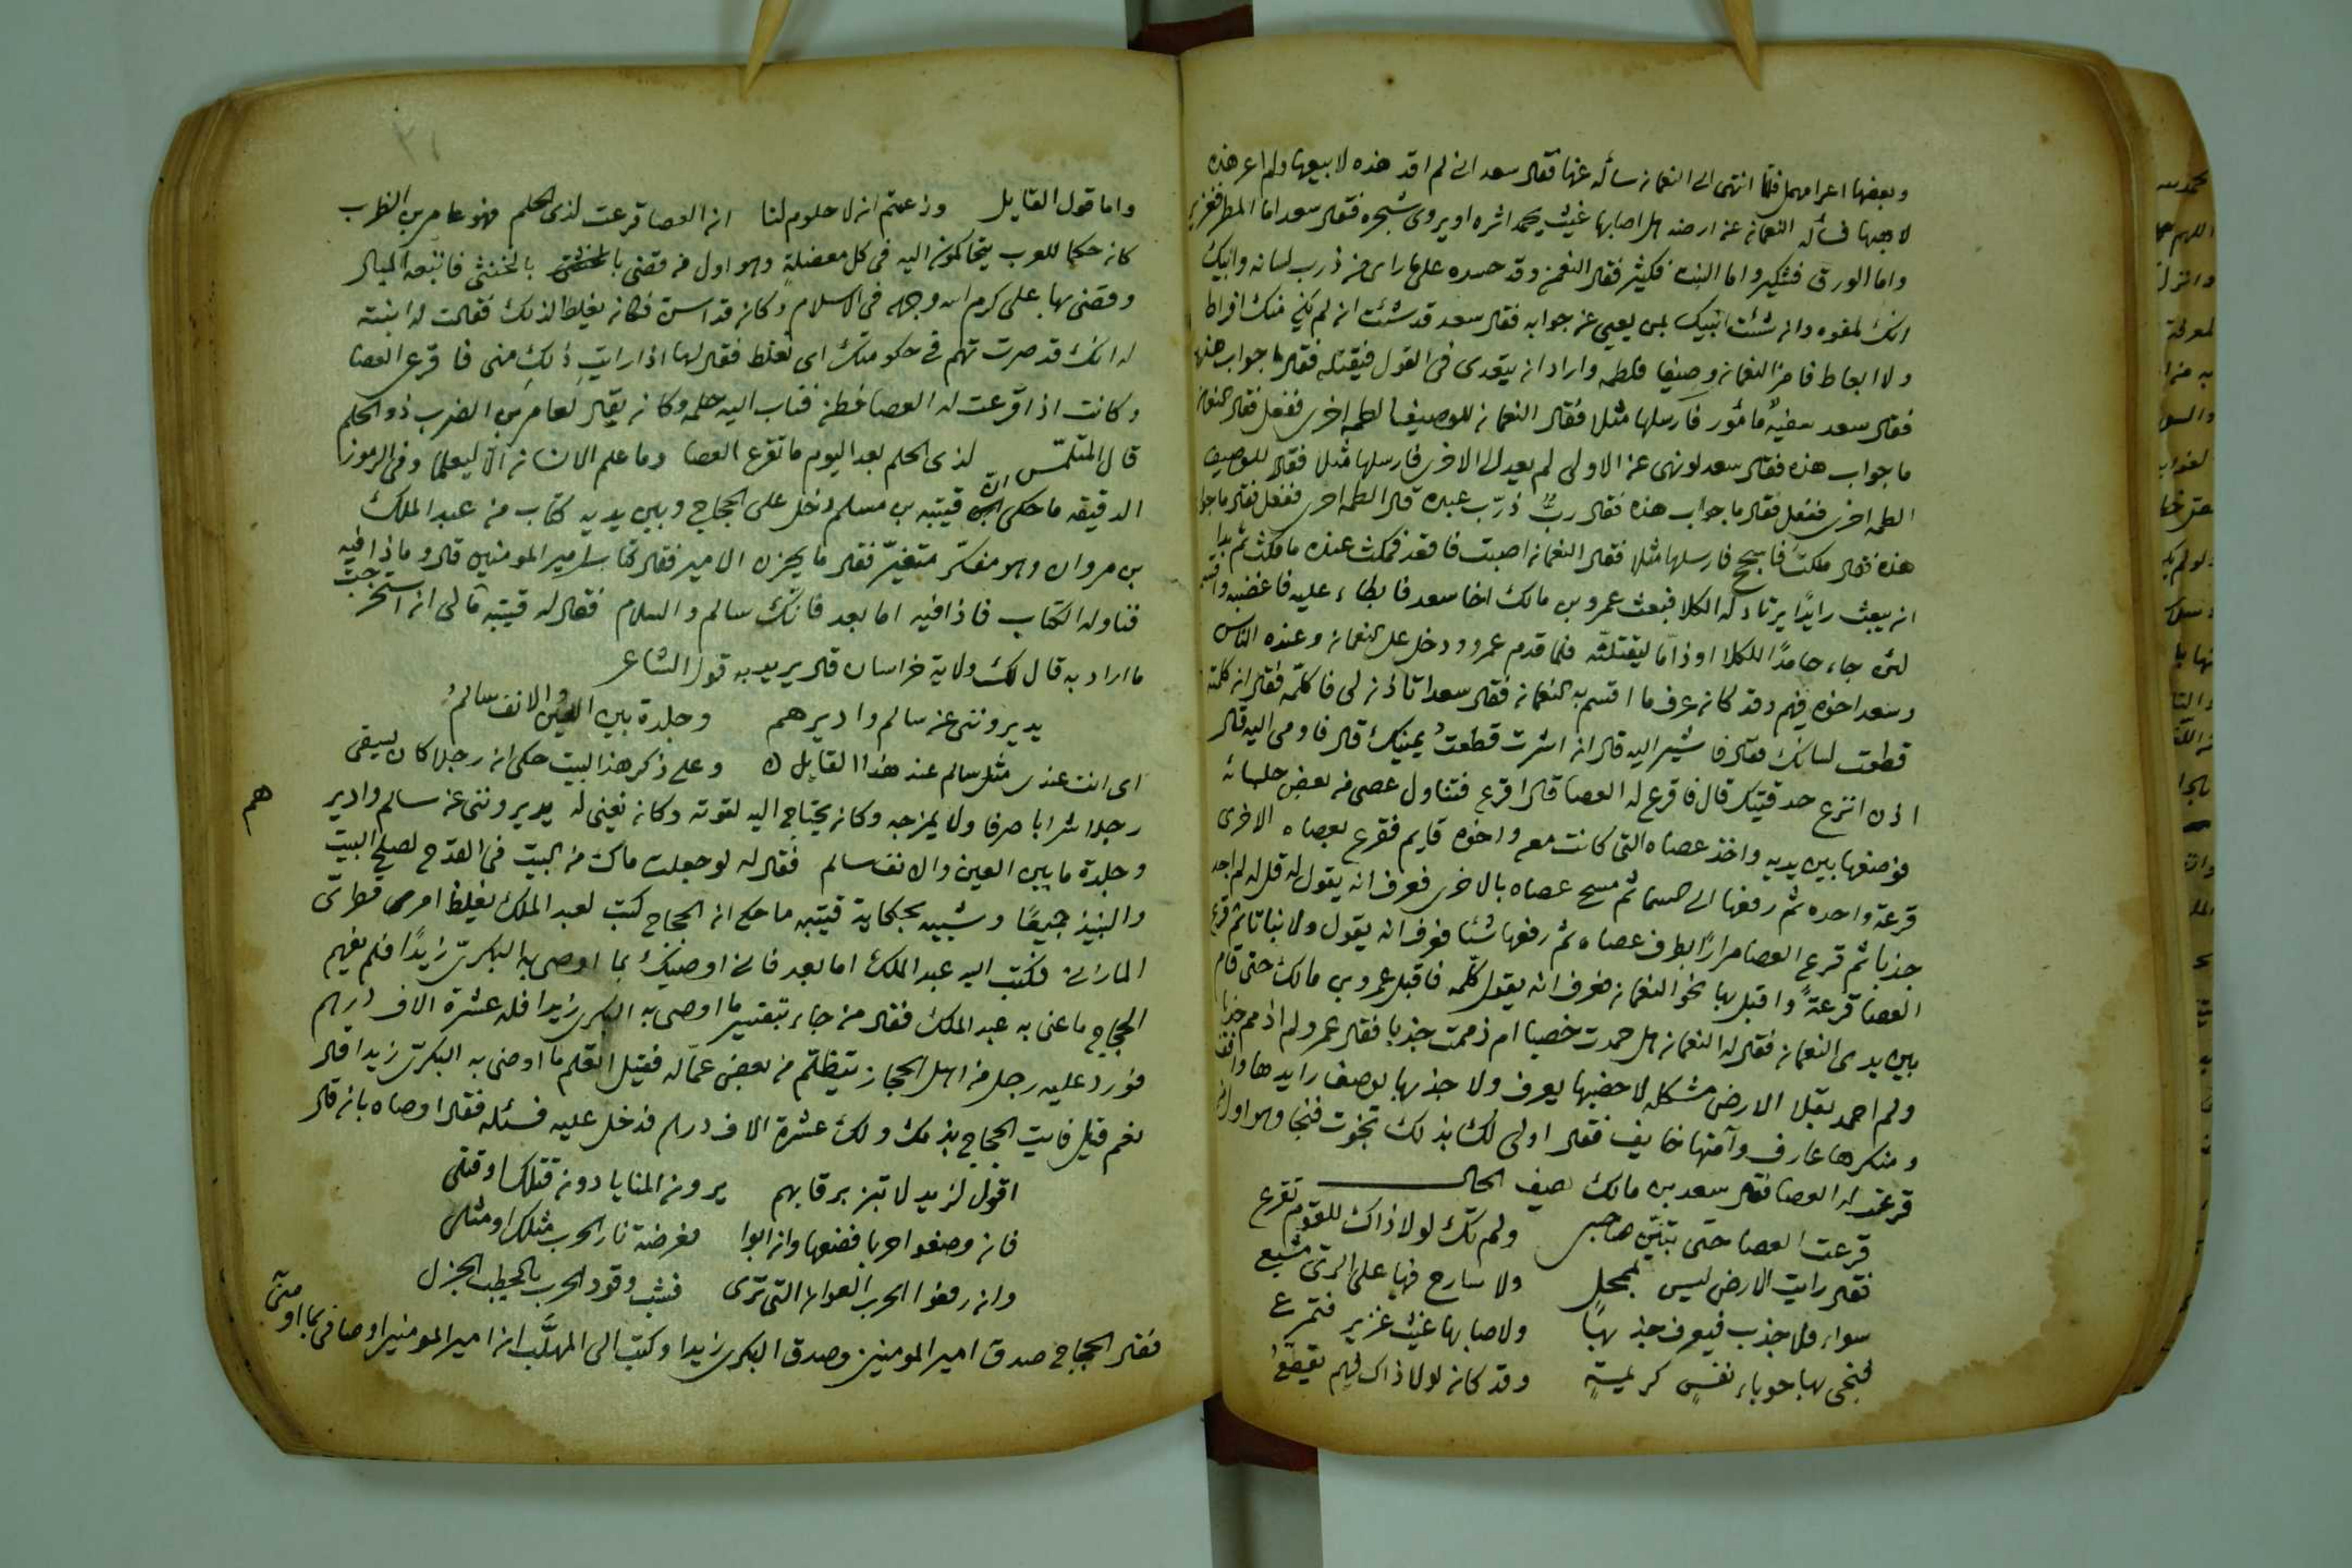 وبعضها اعراء مهمل فلما انتهى الى النعمان سأله عنها فقال سعد انى لم اقد هذه لابيعها ولم اعر هذه
لاهبها فسأله النعمان عن ارضه هل اصابها غيث يحمد اثره او يروى شجره فقال سعد اما المطر فغزير
واما الورق فشكير واما النبت فكثير فقال النعمن وقد حسده على ما راى من ذرب لسانه وابيك
انك لمفوه وان شئت اتيتك بمن يعيى عن جوابه فقال سعد قد شئت ان لم يكن منك افراط
ولا ابعاط فامر النعمان وصيفا فلطمه واراد ان يتعدى فى القول فيقتله فقال ما جواب هذه
فقال سعد سفيهٌ مأمور فارسلها مثلا فقال النعمان للوصيف الطمه اخرى ففعل فقال النعمان
ما جواب هذه فقال سعد لو نهى عن الاولى لم يعد للاخرى فارسلها مثلا فقال للوصيف
الطمه اخرى ففعل فقال ما جواب هذه فقال ربٌّ ادّب عبده قال الطمه اخرى ففعل فقال ما جواب
هذه فقال ملكتَ فاسجح فارسلها مثلا فقال النعمان اصبت فاقعد فمكث عنده ما مكث ثم بدا له
ان يبعث رايدًا يرتاد له الكلا فبعث عمرو بن مالك اخا سعد فابطاء عليه فاغضبه واقسم
لئن جاء حامدًا للكلا او ذامّا ليقتلنّه فلما قدم عمرو ودخل على النعمان وعنده الناس
وسعد اخوه فيهم وقد كان عرف ما اقسم به النعمان فقال سعد اتاذن لى فاكلّمه فقال ان كلمته
قطعت لسانك فقال فاشير اليه قال ان اشرت قطعتُ يمينك قال فاومى اليه قال
اذن انزع حدقتيك قال فاقرع له العصا قال اقرع فتناول عصى من بعض جلسائه
فوضعها بين يديه واخذ عصاه التى كانت معه واخوه قايم فقرع بعصاه الاخرى
قرعة واحده ثم رفعها الى السما ثم مسح عصاه بالاخرى فعرف انه يقول له قل له لم اجد
جدبا ثم قرع العصا مرارًا بطرف عصاه ثم رفعها شئا فعرف انه يقول ولا نباتا ثم قرع
العصا قرعةً واقبل بها نحو النعمان فعرف انه يقول كلّمه فاقبل عمرو بن مالك حتى قام
بين يدى النعمان فقال له النعمان هل حمدت خصبا ام ذممت جدبا فقال عمرو لم اذمم جدبا
ولم احمد بقلا الارض مشكله لا خصبها يعرف ولا جدبها يوصف رايدها واقف
ومنكرها عارف وآمنها خايف فقال اولى لك بذلك نجوت فنجا وهو اول من
قرعت له العصا فقال سعد بن مالك يصف الحال
قرعت العصا حتى تبيّن صاحبى ولم تك لولا ذاك للقوم تقرع
فقال رايت الارض ليس بممحلٍ ولا سارح فيها على الرعى مشبع
سواء فلا جدب فيعرف جدبها ولا صابها غيث غزير فتمرع
فنجى بها حوباء نفسٍ كريمةٍ وقد كان لولا ذاك فيهم يقطّعُ
واما قول القايل وزعمتم ان لا حلوم لنا ان العصا قرعت لذى الحلم فهو عامر بن الظرب
كان حكما للعرب يتحاكمون اليه فى كل معضلةٍ وهو اول من قضى بالخنثى بالخنثى فاتبعه المبال
وقضى بها على كرم الله وجهه فى الاسلام وكان قد اسن فكان يغلط لذلك فقالت له ابنته
له انك قد صرت تهم فى حكومتك اى تغلط فقال لها اذا رايتِ ذلكِ منى فاقرعى العصا
وكانت اذا قرعت له العصا فطن فثاب اليه حلمه وكان يقال لعامر بن الضرب ذو الحلم
قال المتلمّس لذى الحلم بعد اليوم ما تقرع العصا وما علم الانسان الّا ليعلما وفى الرموز
الدقيقه ما حكى ان قتيبه بن مسلم دخل على الحجاج وبين يديه كتاب من عبد الملك
بن مروان وهو مفكّر متغيّر فقال ما يحزن الامير فقال كتاب امير المومنين قال وما ذا فيه
فناوله الكتاب فاذا فيه اما بعد فانّك سالم والسلام فقال له قتيبه ما لى ان استخرجت
ما اراد به قال لك ولاية خراسان قال يريد به قول الشاعر
يديروننى عن سالم واديرهم وجلدة بين العين والانف سالمُ
اى انت عندى مثل سالم عند هذا القايل وعلى ذكر هذا البيت حكى ان رجلا كان يسقى
رجلا شرابا صرفا ولا يمزجه وكان يحتاج اليه لقوته وكان يغنى له يديروننى عن سالم وادير
هم
وجلدة ما بين العين والانف سالم فقال له لو جعلت ماك من البيت فى القدح لصلح البيت
والنبيذ جميعًا وشبيه بحكاية قتيبه ما حكى ان الحجاج كتب لعبد الملك يغلظ امر قطرى
المازنى فكتب اليه عبد الملك اما بعد فانى اوصيك بما اوصى به البكرىّ زيدًا فلم يفهم
الحجاج ما عنى به عبد الملك فقال من جاء بتفسير ما اوصى به البكرى زيدا فله عشرة الاف درهم
فورد عليه رجل من اهل الحجاز يتظلّم من بعض عمّاله فقيل اتعلم ما اوصى به البكرىّ زيدا قال
نعم قيل فايت الحجاج بذلك ولك عشرة الاف درهم فدخل عليه فسئله فقال اوصاه بان قال
اقول لزيد لا تبز برقابهم يرون المنايا دون قتلك او قتلى
فان وضعوا حربا فضعها وان ابوا فعرضة نار الحرب مثلك او مثلى
وان رفعوا الحرب العوان التى ترى فشب وقود الحرب بالحطب الجزل
فقال الحجاج صدق امير المومنين وصدق البكرى زيدا وكتب الى المهلَّب ان امير المومنين اوصانى بما اوصى